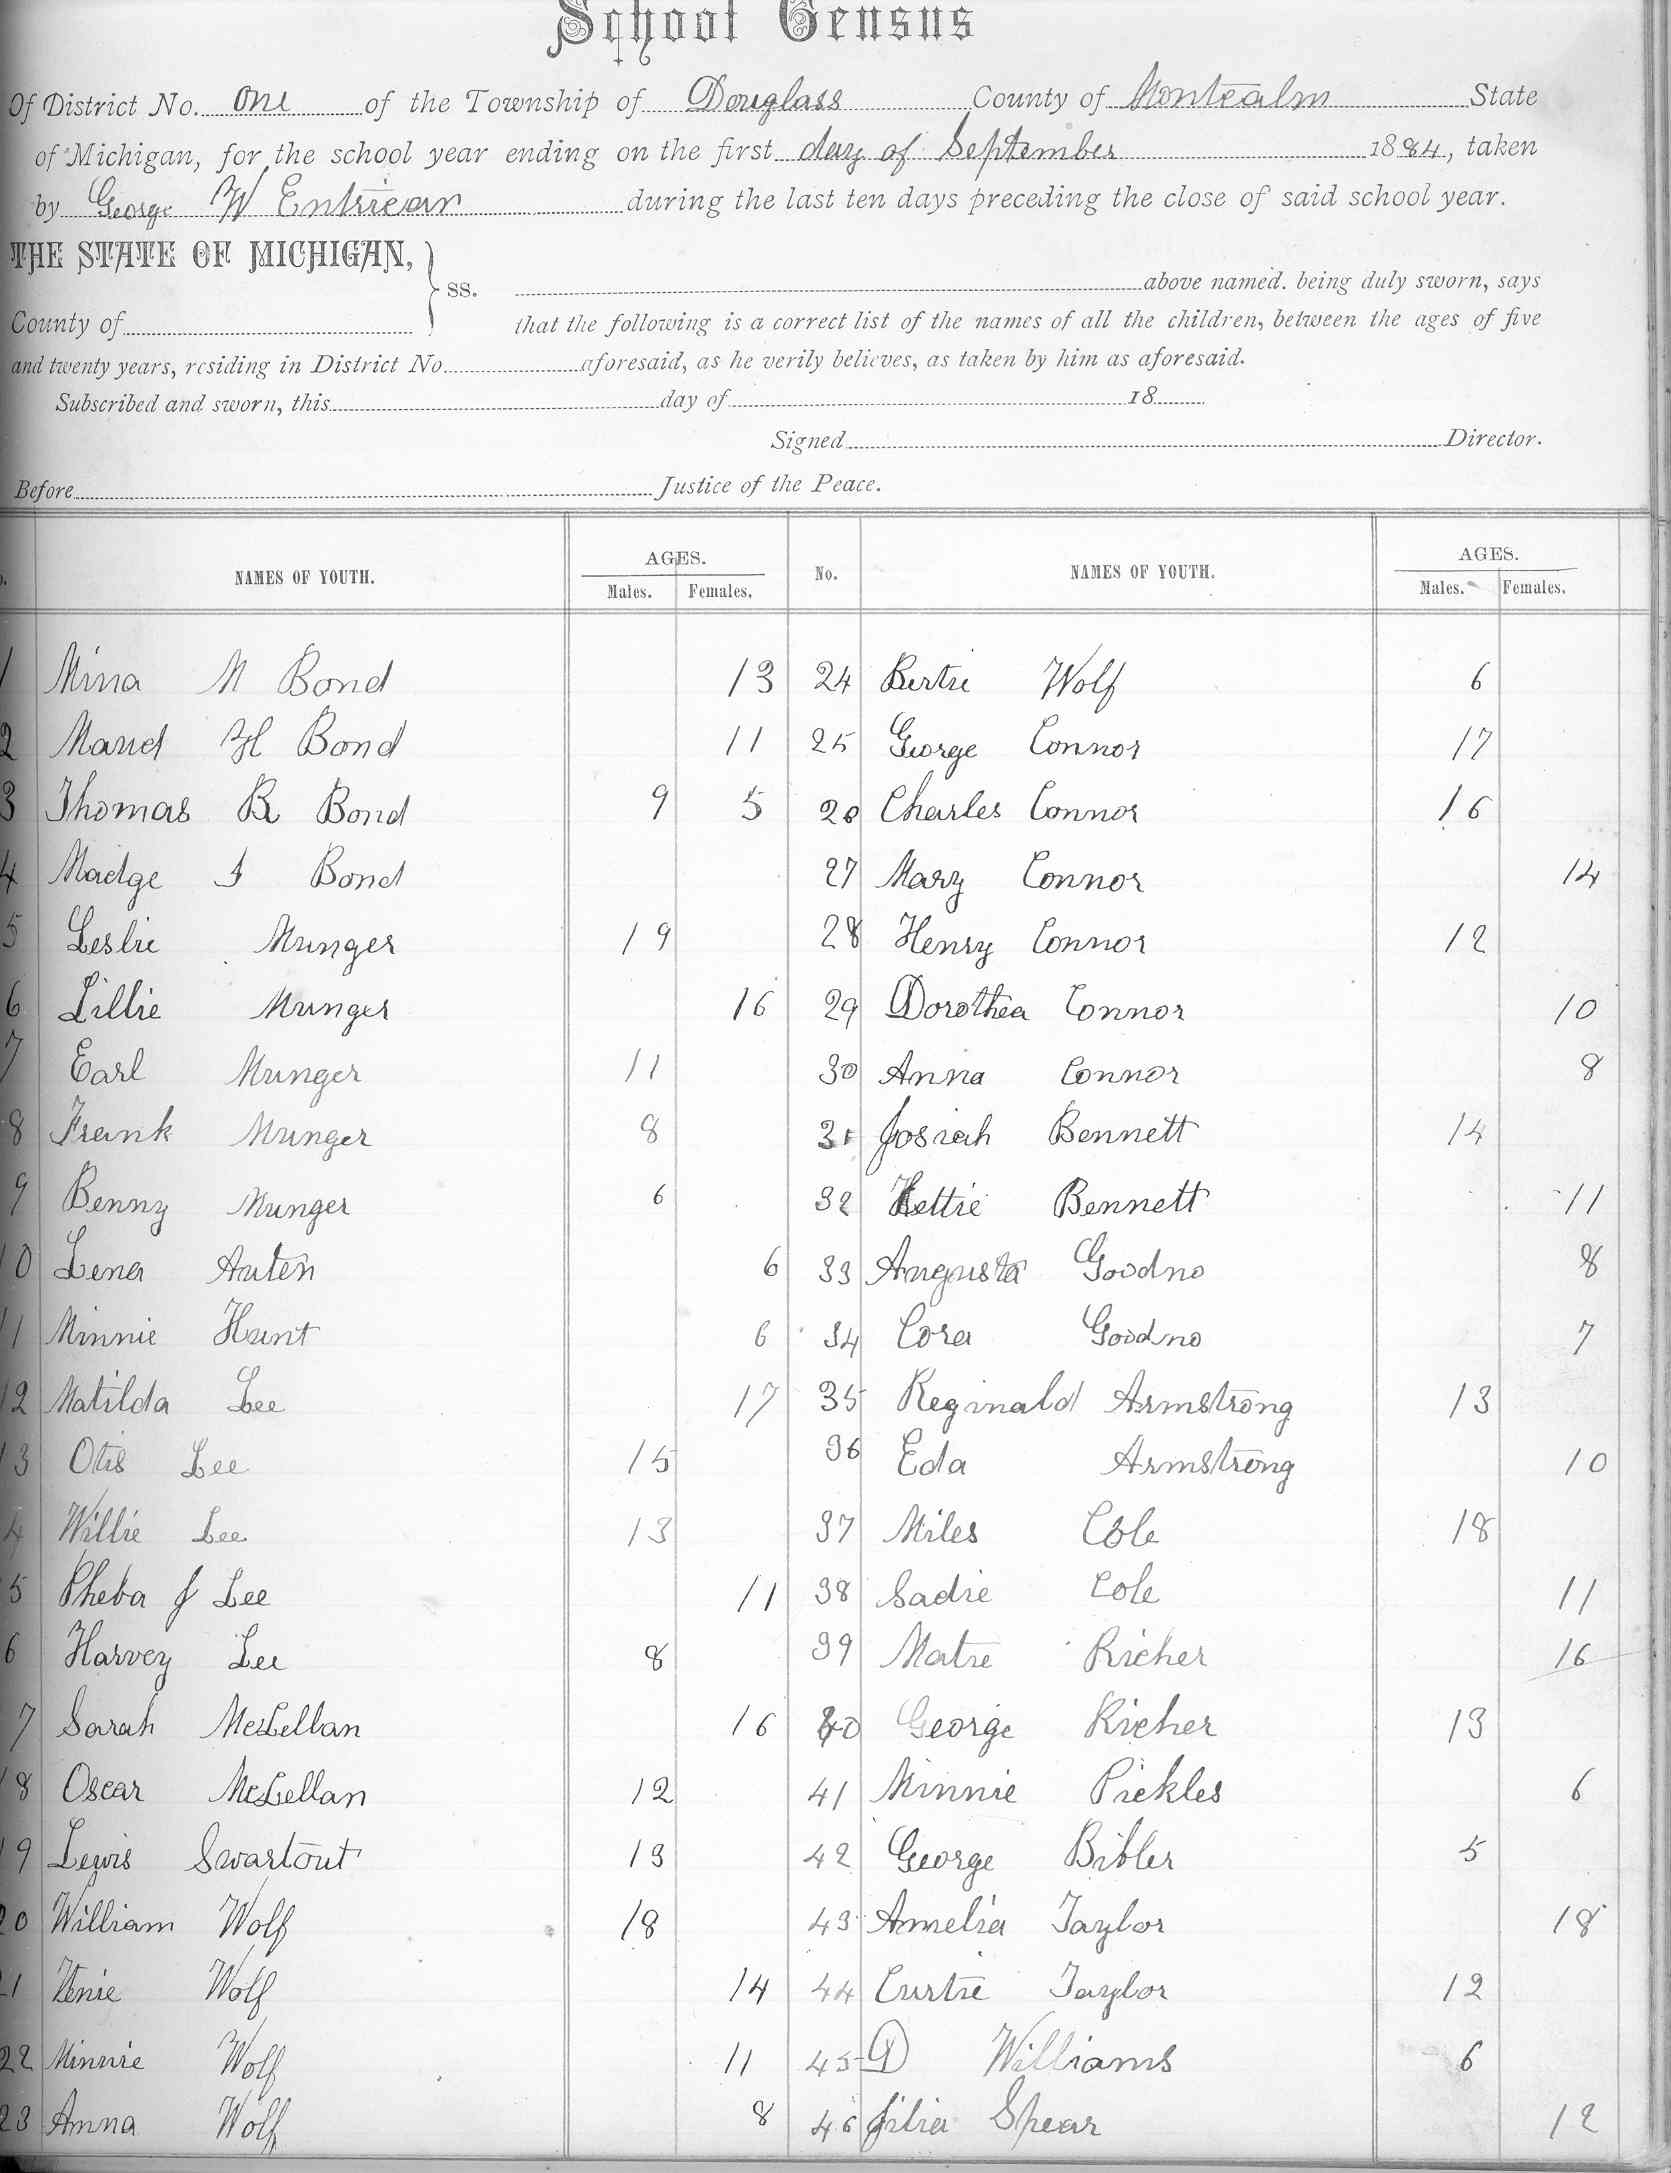 School Census
Of District No. One of the Township of Douglass County of Montcalm State
of Michigan, for the school year ending on the first day of September 1884, taken
by George W Entrican during the last ten days preceding the close of said school year.
THE STATE OF MICHIGAN, } ss. above named. being duly sworn, says
County of that the following is a correct list of the names of all the children, between the ages of five
and twenty years, residing in District No. aforesaid, as he verily believes, as taken by him as aforesaid.
Subscribed and sworn, this day of 18
Signed Director.
Before Justice of the Peace.
NAMES OF YOUTH. AGES. Males. Females. No. NAMES OF YOUTH. AGES. Males. Females.
1 Mina M Bond 13 24 Bertie Wolf 6
2 Maud H Bond 11 25 George Connor 17
3 Thomas R Bond 9 5 26 Charles Connor 16
4 Madge I Bond 27 Mary Connor 14
5 Leslie Munger 19 28 Henry Connor 12
6 Lillie Munger 16 29 Dorothea Connor 10
7 Earl Munger 11 30 Anna Connor 8
8 Frank Munger 8 31 Josiah Bennett 14
9 Benny Munger 6 32 Hettie Bennett 11
10 Lena Auten 6 33 Augusta Goodno 8
11 Minnie Hunt 6 34 Cora Goodno 7
12 Matilda Lee 17 35 Reginald Armstrong 13
13 Otis Lee 15 36 Eda Armstrong 10
4 Willie Lee 13 37 Miles Cole 18
5 Pheba J Lee 11 38 Sadie Cole 11
6 Harvey Lee 8 39 Matie Richer 16
7 Sarah McLellan 16 40 George Richer 13
18 Oscar McLellan 12 41 Minnie Pickles 6
19 Lewis Swartout 13 42 George Bibler 5
20 William Wolf 18 43 Amelia Taylor 18
21 Wolf 14 44 Curtie Taylor 12
22 Minnie Wolf 11 45 D Williams 6
23 Anna Wolf 8 46 Jilia Spear 12